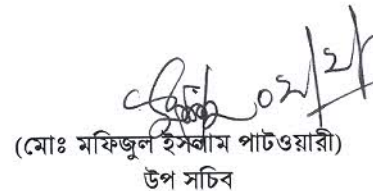 (মোঃ মফিজুল ইসলাম পাটওয়ারী)
উপ সচিব